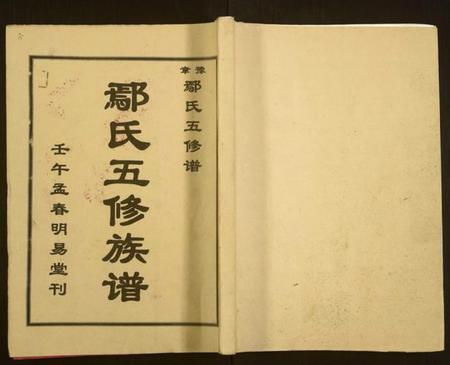 鄢氏五修族谱
壬午孟春明易堂刊
豫章
鄢氏五修谱